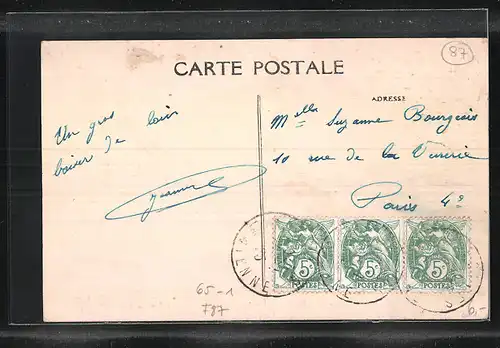 87
CARTE POSTALE
ADRESSE
Un gros
baiser de loin
Jeanne
Melle Suzanne Bourgeois
10 rue de la Verrerie
Paris 4e
5 5 5
POSTES POSTES POSTES
65-1
F87
6,-